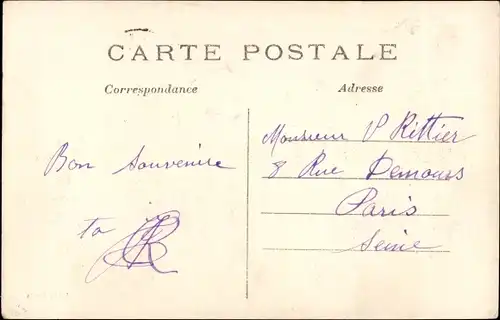 CARTE POSTALE
Correspondance
Adresse
Bon Souvenire
ta
Monsieur P Rittier
8 Rue Demours
Paris
Seine